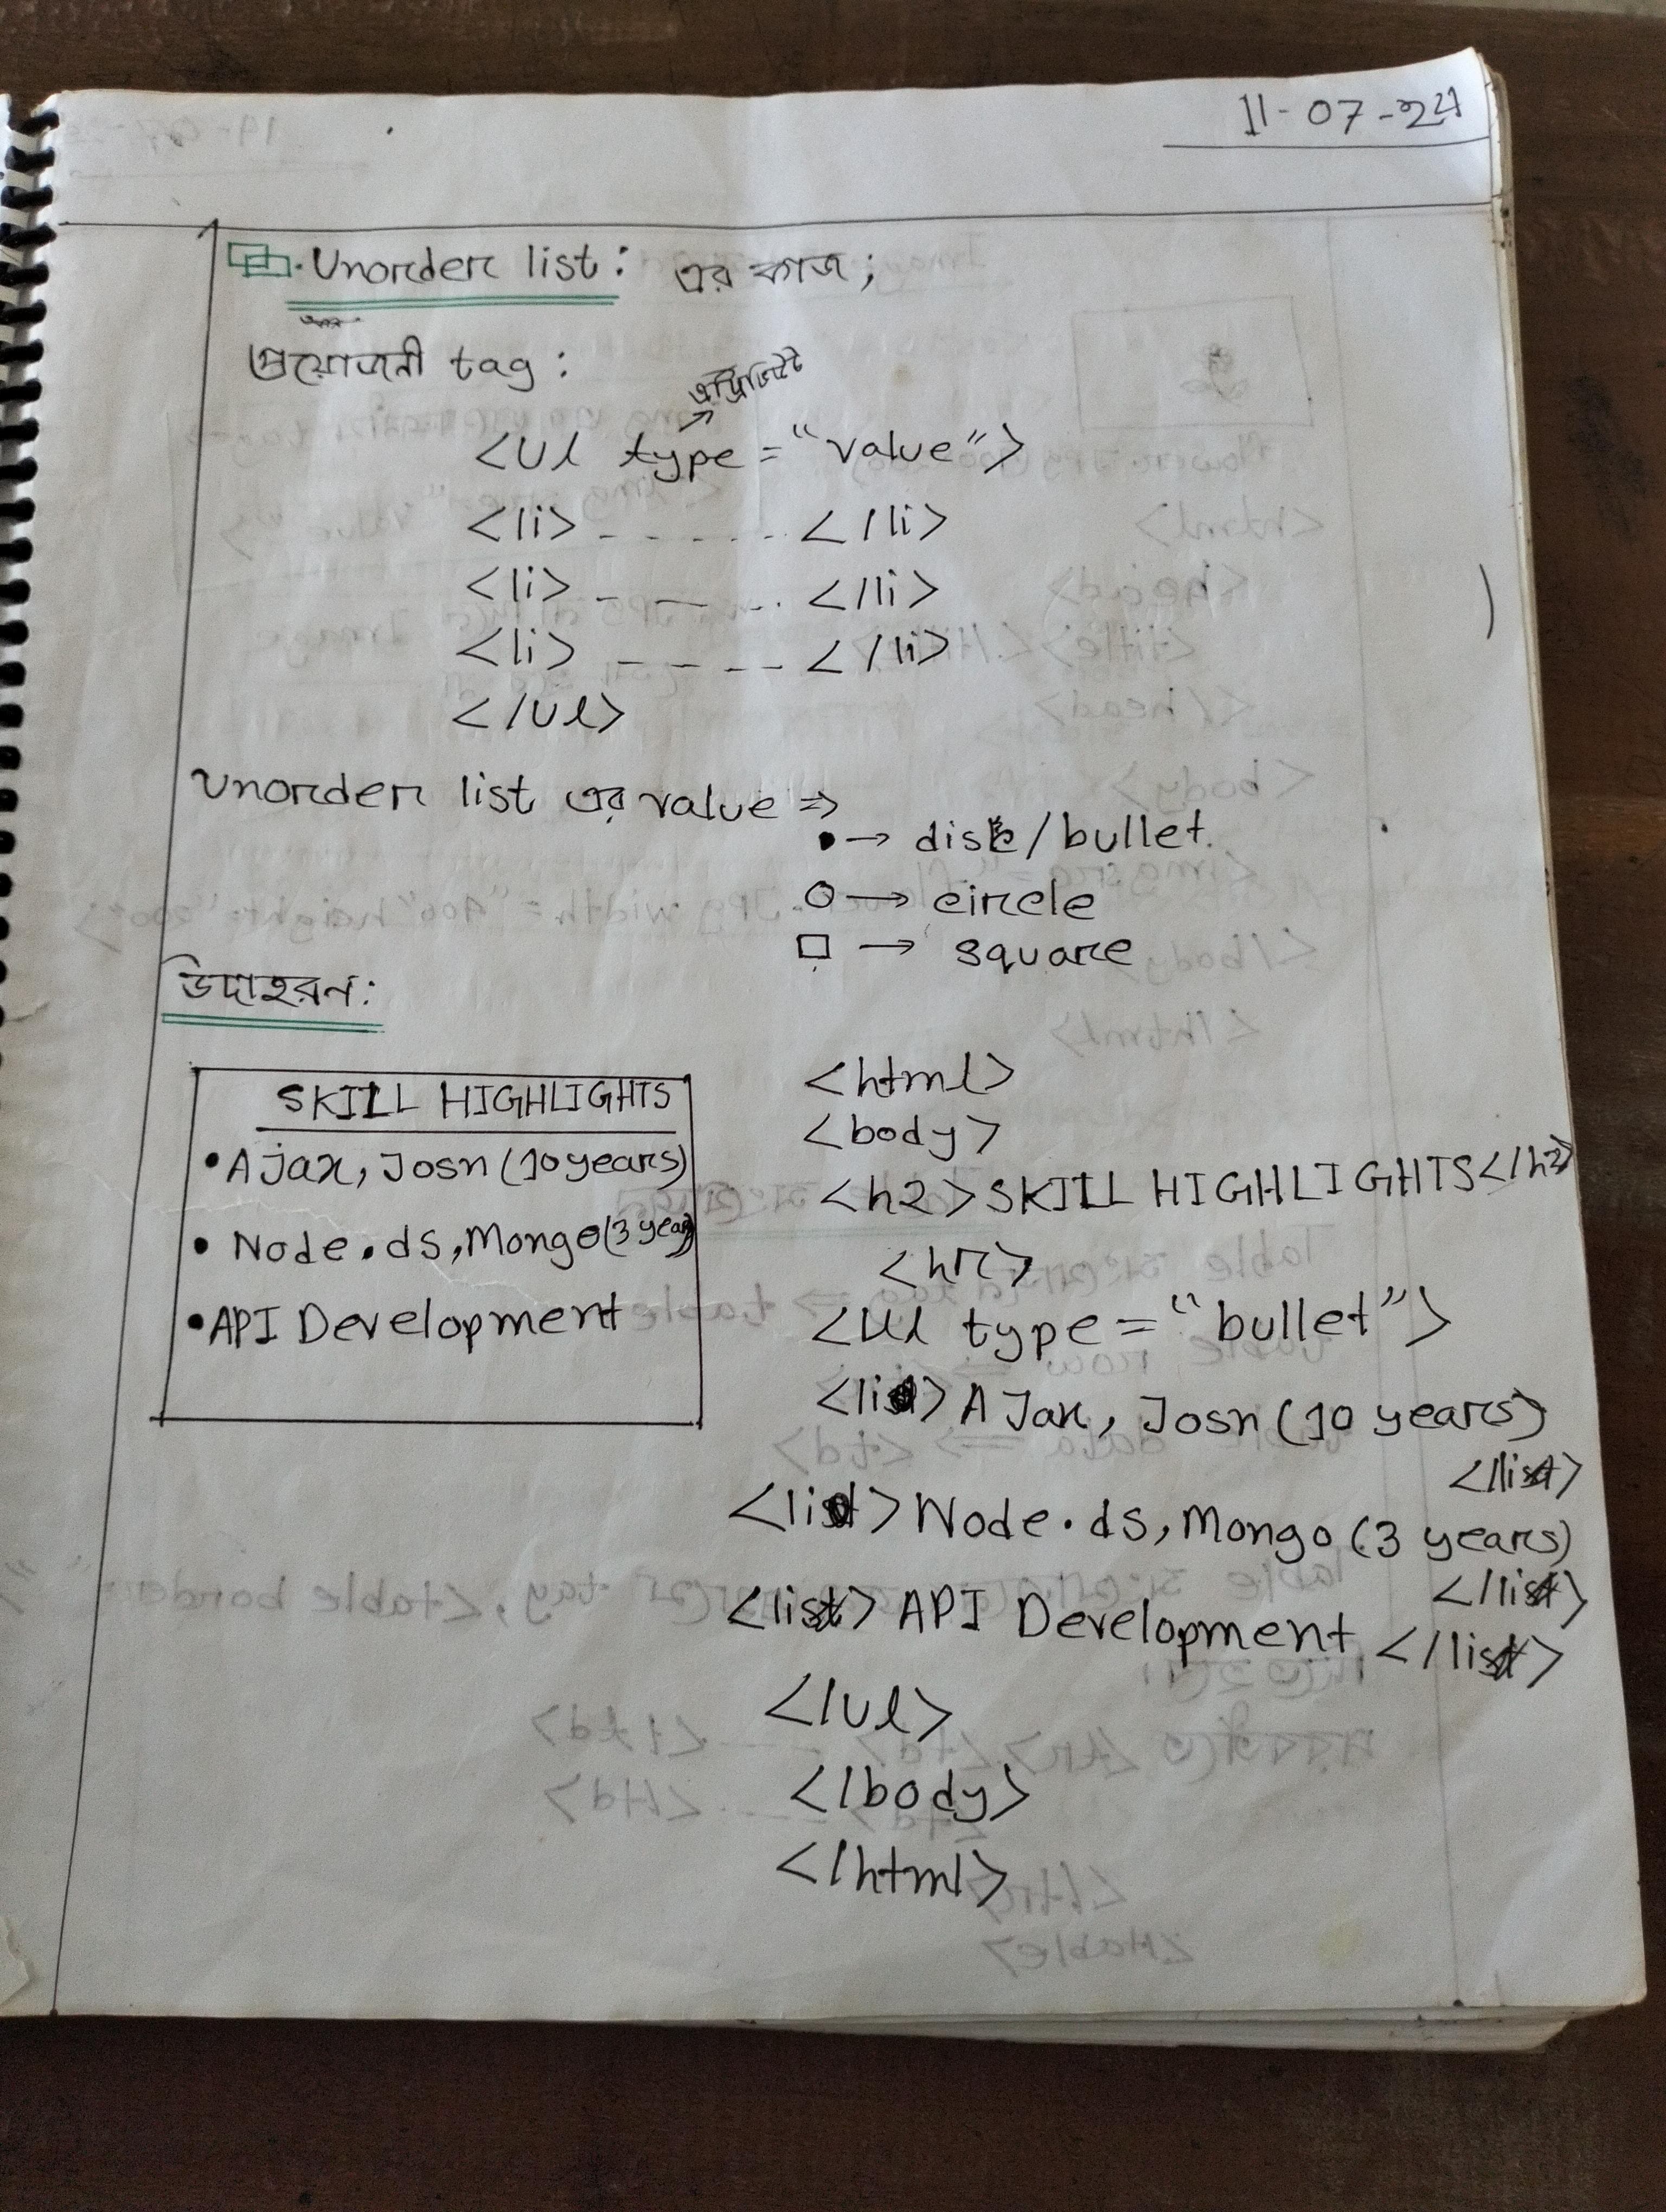 11-07-24
Unorder list: এর কাজ;
প্রয়োজনী tag:
এট্রিবিউট
<ul type="value">
<li> - - - - - </li>
<li> - - - - </li>
<li> - - - - </li>
</ul>
Unorder list এর value =>
• → disc/bullet.
○ → circle
□ → square
উদাহরন:
SKILL HIGHLIGHTS
• AJax, Josn (10 years)
• Node.ds, Mongo (3 year)
• API Development
<html>
<body>
<h2>SKILL HIGHLIGHTS</h2>
<hr>
<ul type="bullet">
<li> AJax, Josn (10 years)
</li>
<li> Node.ds, Mongo (3 years)
</li>
<li> API Development </li>
</ul>
</body>
</html>